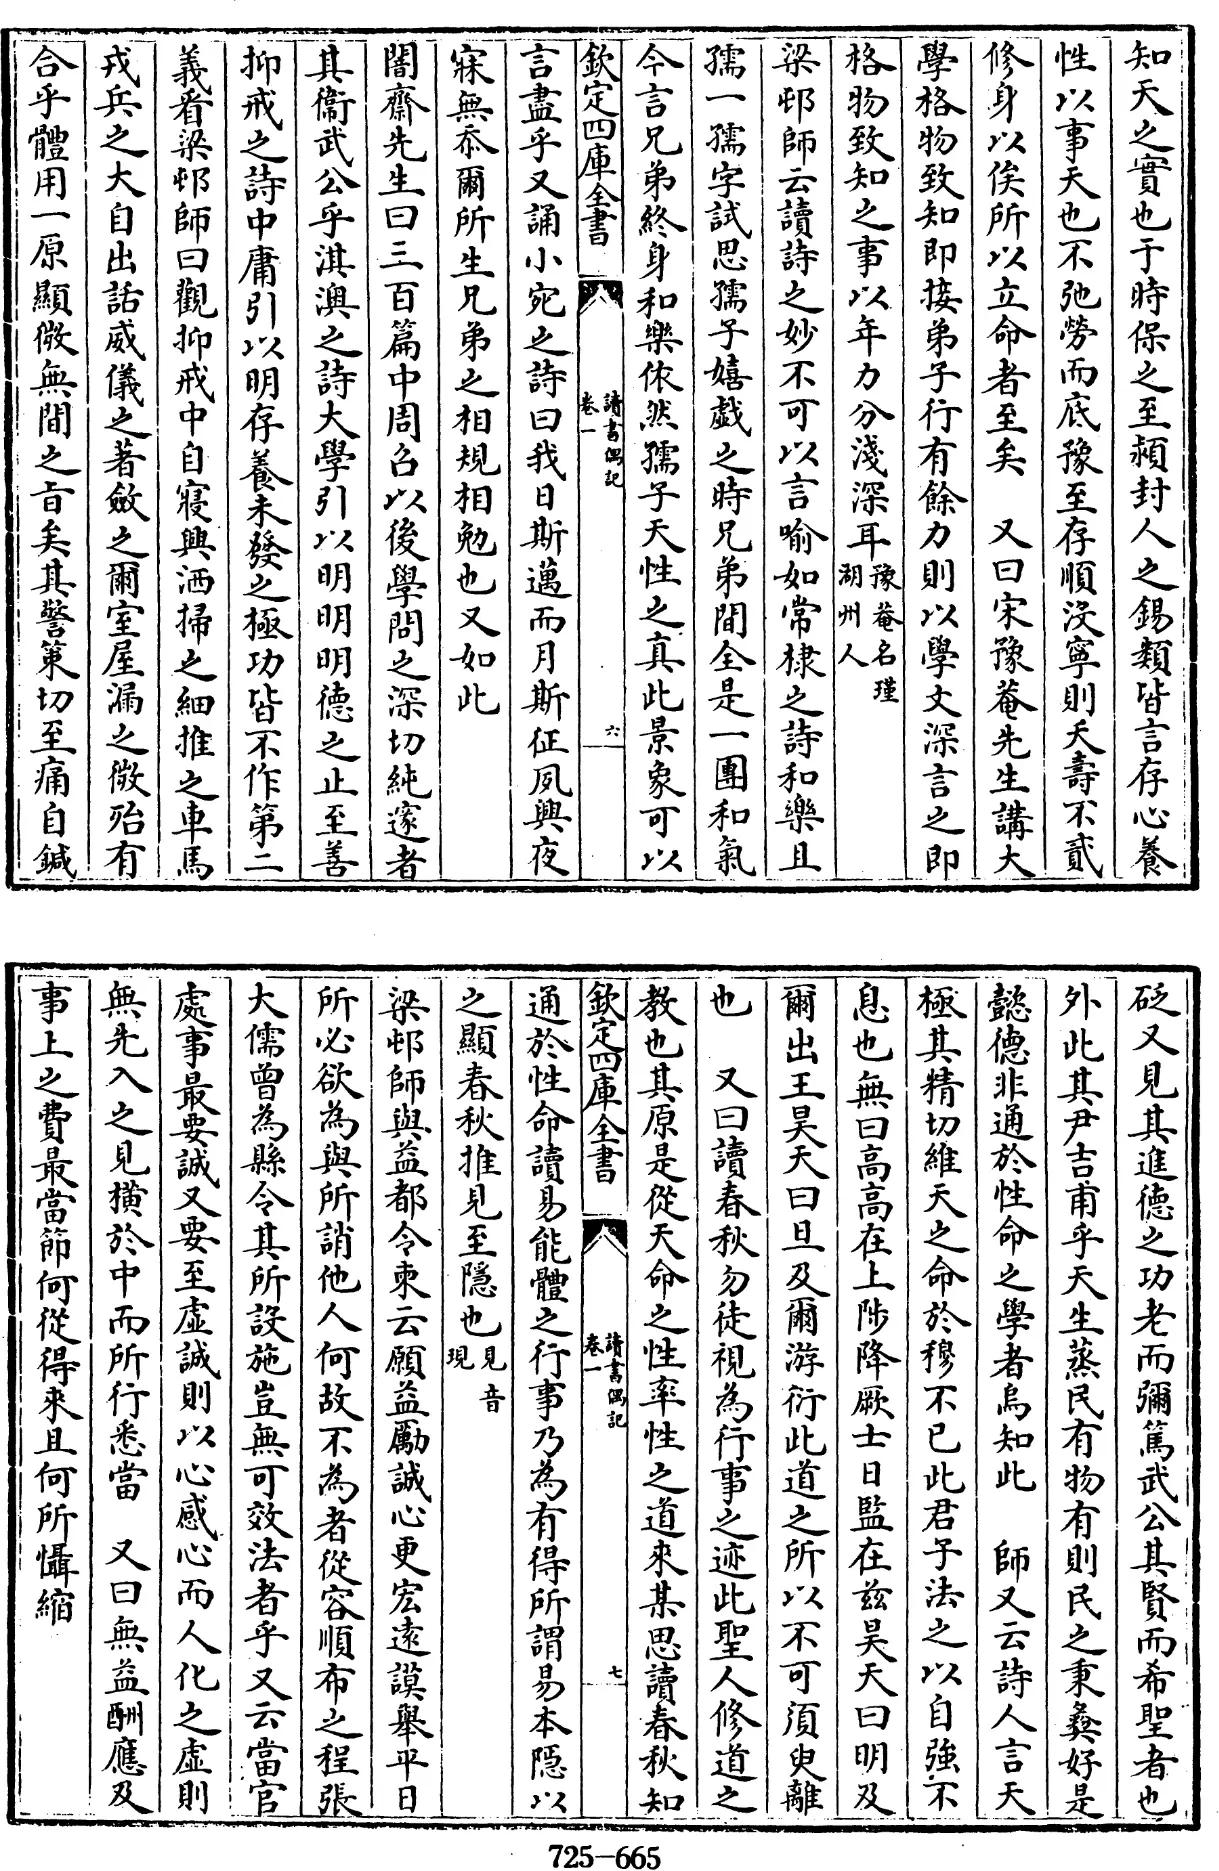 知天之實也于時保之至潁封人之錫類皆言存心養
性以事天也不弛勞而底豫至存順沒寧則夭壽不貳
修身以俟所以立命者至矣　又曰宋豫菴先生講大
學格物致知即接弟子行有餘力則以學文深言之即
格物致知之事以年力分淺深耳豫菴名瑾
湖州人
梁邨師云讀詩之妙不可以言喻如常棣之詩和樂且
孺一孺字試思孺子嬉戲之時兄弟間全是一團和氣
今言兄弟終身和樂依然孺子天性之真此景象可以
欽定四庫全書
讀書偶記
卷一
六
言盡乎又誦小宛之詩曰我日斯邁而月斯征夙興夜
寐無忝爾所生兄弟之相規相勉也又如此
闇齋先生曰三百篇中周召以後學問之深切純邃者
其衞武公乎淇澳之詩大學引以明明明德之止至善
抑戒之詩中庸引以明存養未發之極功皆不作第二
義看梁邨師曰觀抑戒中自寢興洒掃之細推之車馬
戎兵之大自出話威儀之著斂之爾室屋漏之微殆有
合乎體用一原顯微無間之旨矣其警策切至痛自鍼
砭又見其進德之功老而彌篤武公其賢而希聖者也
外此其尹吉甫乎天生蒸民有物有則民之秉彝好是
懿德非通於性命之學者烏知此　師又云詩人言天
極其精切維天之命於穆不已此君子法之以自強不
息也無曰高高在上陟降厥士日監在兹昊天曰明及
爾出王昊天曰旦及爾游衍此道之所以不可須臾離
也　又曰讀春秋勿徒視為行事之迹此聖人修道之
教也其原是從天命之性率性之道來某思讀春秋知
欽定四庫全書
讀書偶記
卷一
七
通於性命讀易能體之行事乃為有得所謂易本隱以
之顯春秋推見至隱也見音
現
梁邨師與益都令柬云願益勵誠心更宏遠謨舉平日
所必欲為與所誚他人何故不為者從容順布之程張
大儒曾為縣令其所設施豈無可效法者乎又云當官
處事最要誠又要至虛誠則以心感心而人化之虛則
無先入之見橫於中而所行悉當　又曰無益酬應及
事上之費最當節何從得來且何所懾縮
725-665